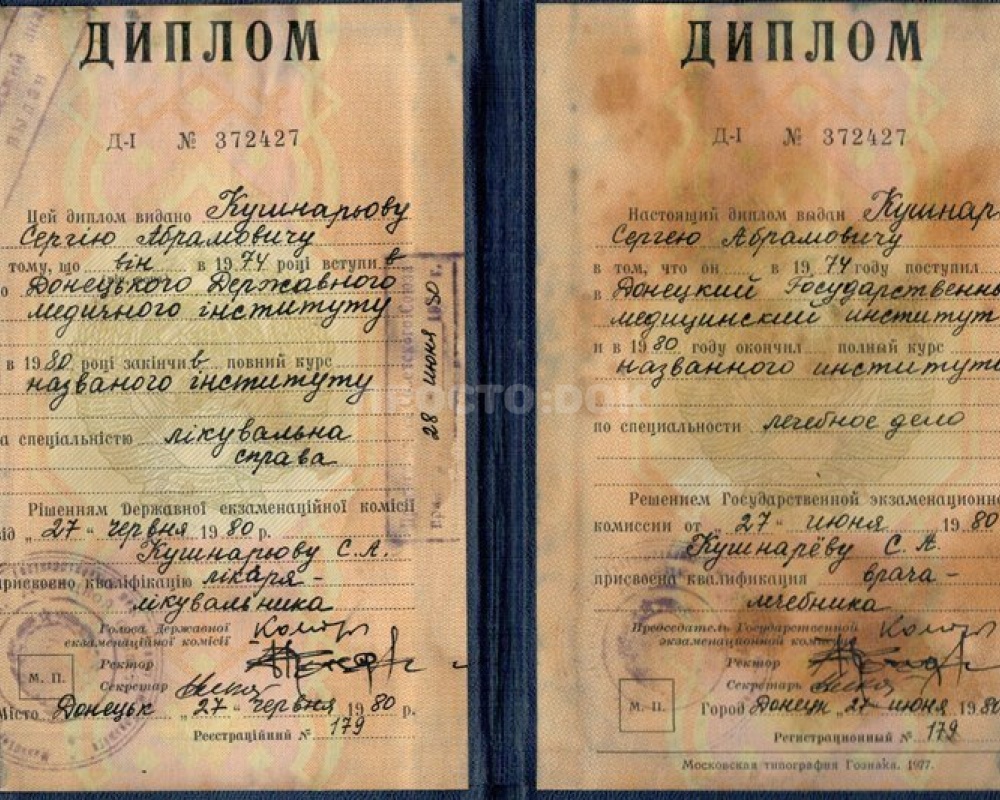 ДИПЛОМ
Д-I № 372427
Цей диплом видано Кушнарьову
Сергію Абрамовичу
тому, що він в 1974 році вступив
Донецького Державного
медичного інституту
в 1980 році закінчив повний курс
названого інституту
а спеціальністю лікувальна
справа
Рішенням Державної екзаменаційної комісії
від „27“ червня 1980 р.
Кушнарьову С.А.
присвоєно кваліфікацію лікаря-
лікувальника
Голова Державної
екзаменаційної комісії
Ректор
М. П.
Секретар
Місто Донецьк „27“ червня 1980 р.
Реєстраційний № 179
28 июня 1980 г.
ДИПЛОМ
Д-I № 372427
Настоящий диплом выдан Кушнар
Сергею Абрамовичу
в том, что он в 1974 году поступил
в Донецкий Государственны
медицинский институт
и в 1980 году окончил полный курс
названного института
по специальности лечебное дело
Решением Государственной экзаменационно
комиссии от „27“ июня 1980
Кушнарёву С. А.
присвоена квалификация врача-
лечебника
Председатель Государственной
экзаменационной
Ректор
Секретарь
М. П.
Город Донецк „27“ июня 1980
Регистрационный № 179
Московская типография Гознака. 1977.
ПРОСТО:DOK